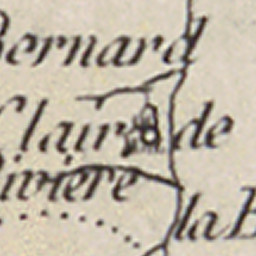 Bernard
Clair de
Rivière
la B